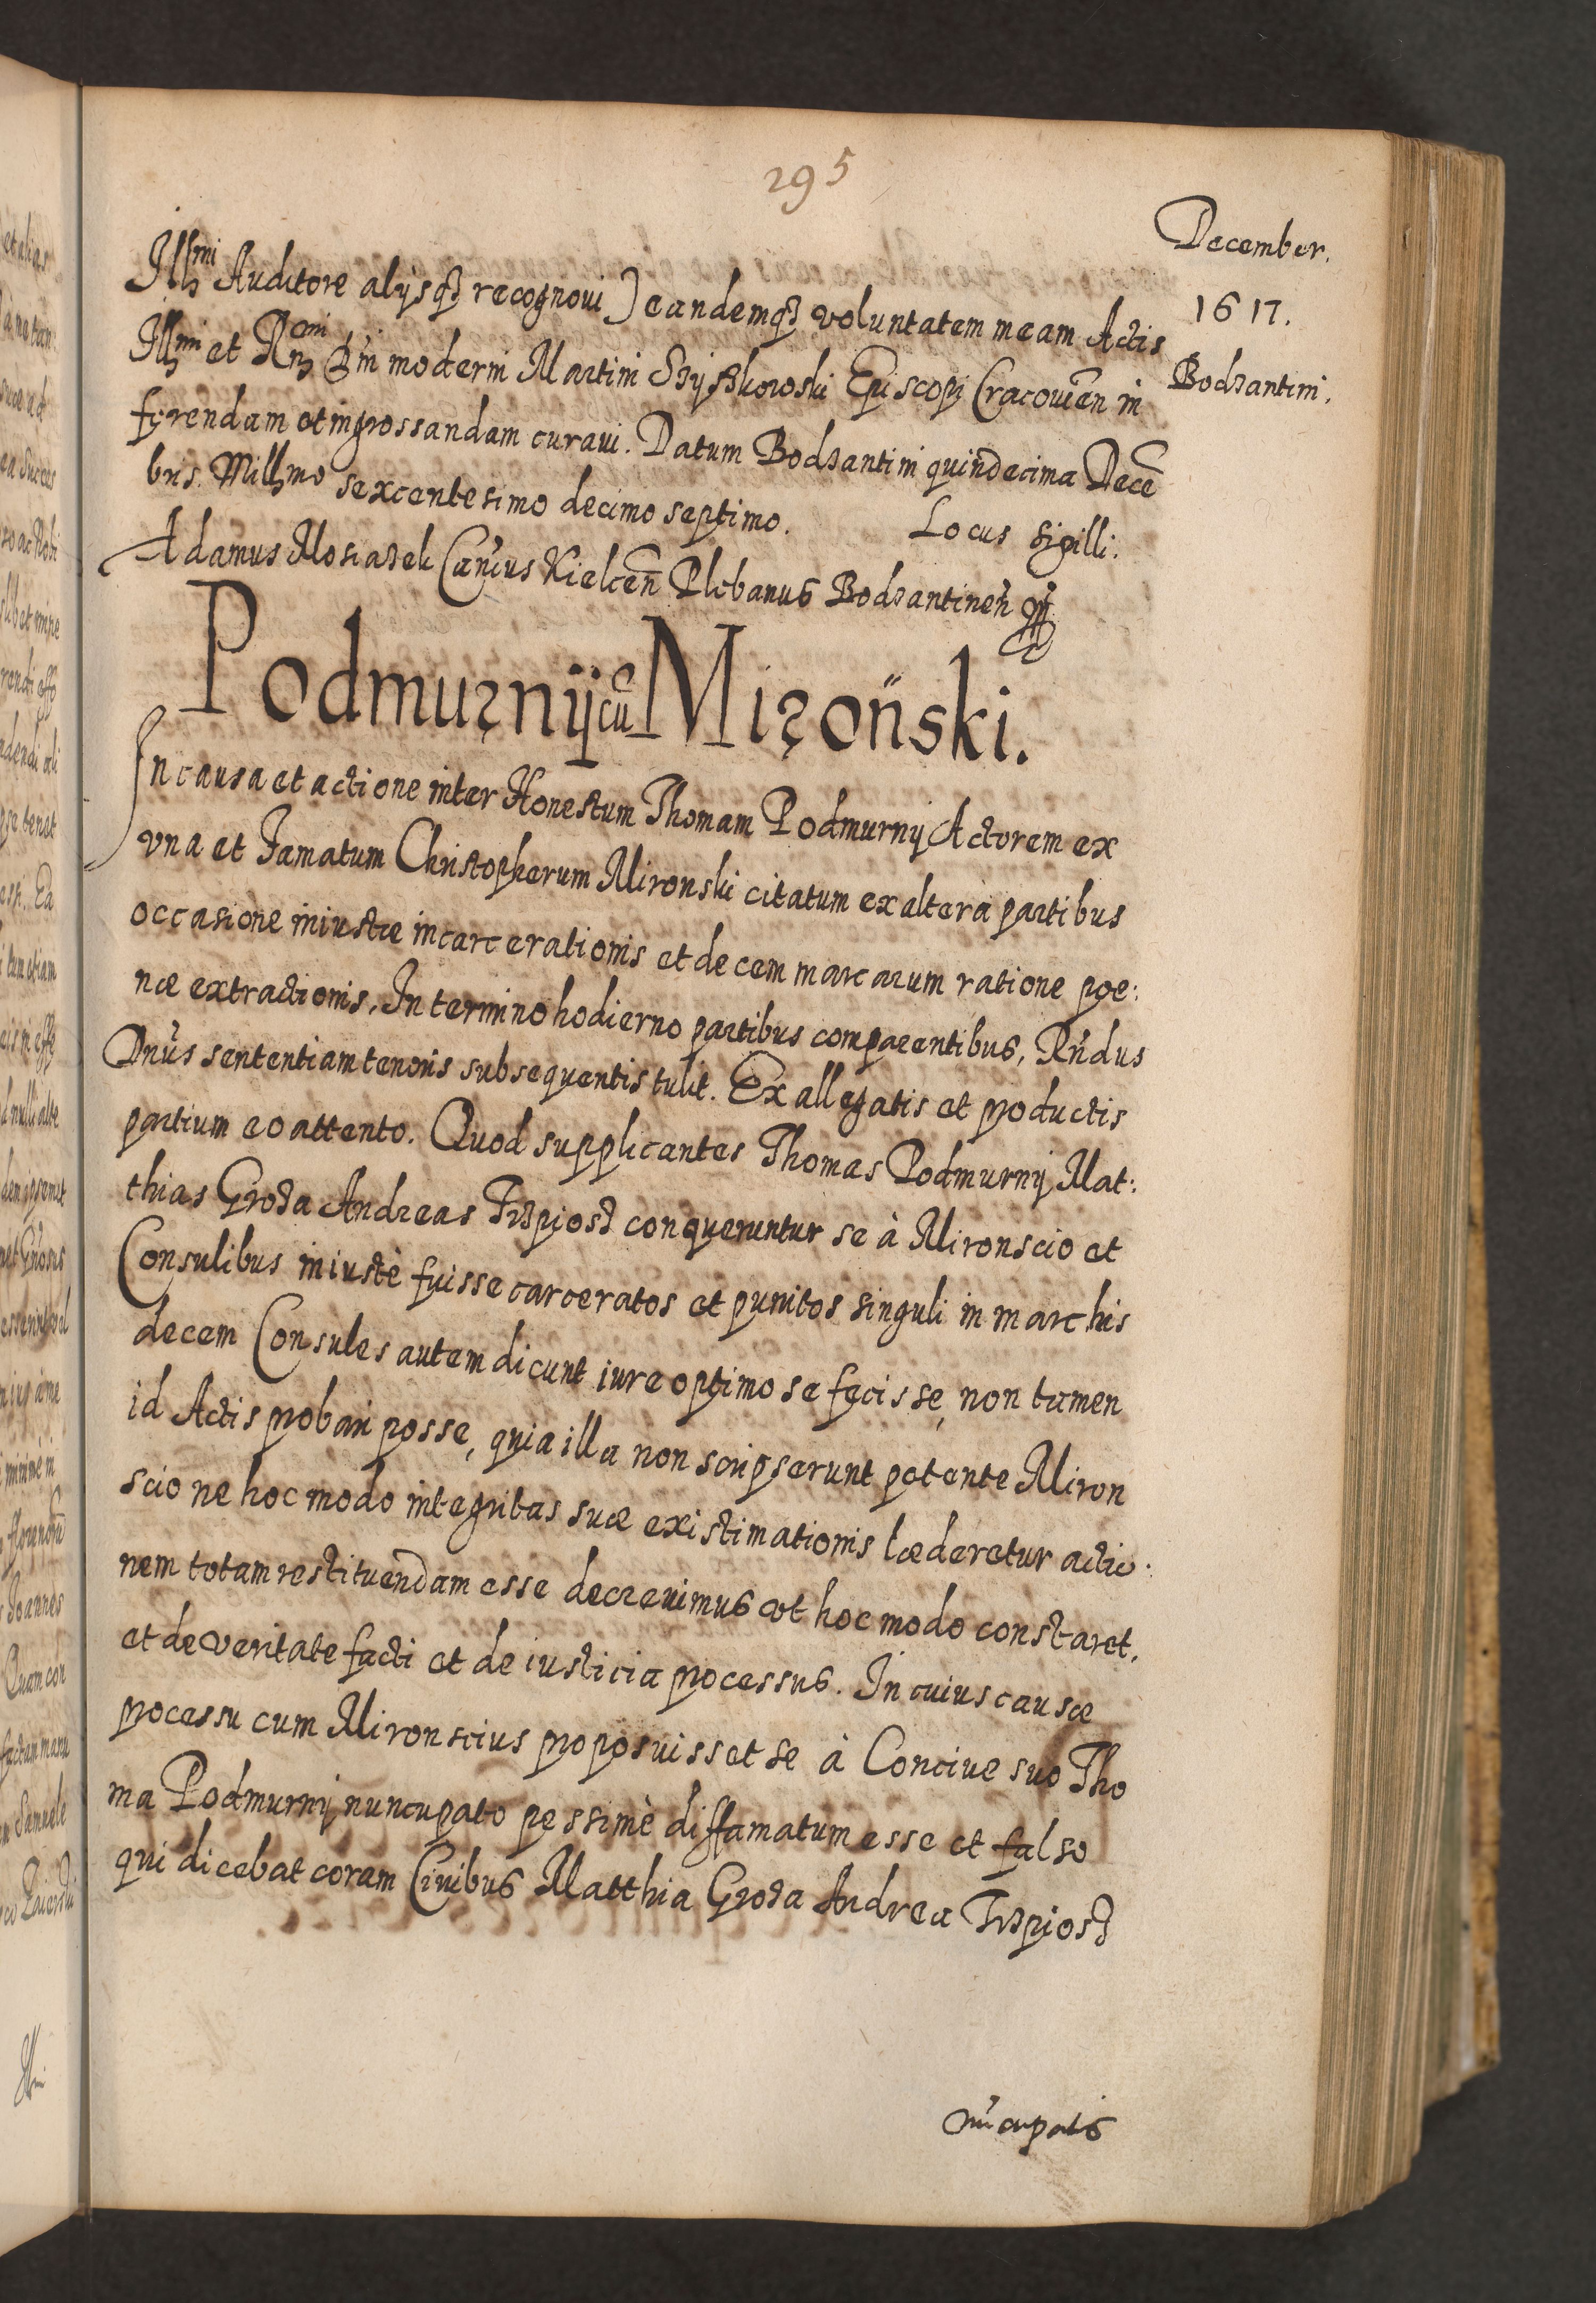 295
December.
1617.
Bodzantini.
Illmi Auditore alijsq3 recognoui) eandemq3 voluntatem meam Actis
Illmi et Rmi Dni moderni Martini Szyszkowski Episcopi Cracouien̄ in
ferendam et ingrossandam curaui. Datum Bodzantini quindecima Decē
bris. Millmo sexcentesimo decimo septimo. Locus Sigilli.
Adamus Mosiazek Canīcus Kielcen̄ Plebanus Bodzantinen̄
Podmurnÿ cū Miroński.
In causa et actione inter Honestum Thomam Podmurny Actorem ex
vna et Famatum Christopherum Mironski citatum ex altera partibus
occasione iniustæ incarcerationis et decem marcarum ratione poe:
næ extractionis. In termino hodierno partibus comparentibus, Rn̄dus
Dnūs sententiam tenoris subsequentis tulit. Ex allegatis et productis
partium eo attento. Quod supplicantes Thomas Podmurnij Mat:
thias Groza Andreas Trzpiosz conqueruntur se à Mironscio et
Consulibus iniustè fuisse carceratos et punitos singuli in marchis
decem Consules autem dicunt iure optimo se fecisse, non tamen
id Actis probari posse, quia illa non scripserunt petente Miron
scio ne hoc modo integritas suæ existimationis læderetur actio:
nem totam restituendam esse decreuimus vt hoc modo constaret,
et de veritate facti et de iusticia processus. In cuius causæ
processu cum Mironscius proposuisset se à Conciue suo Tho
ma Podmurnij nuncupato pessimè diffamatum esse et falso
qui dicebat coram Ciuibus Matthia Groza Andrea Trzpiosz
nūcupatis